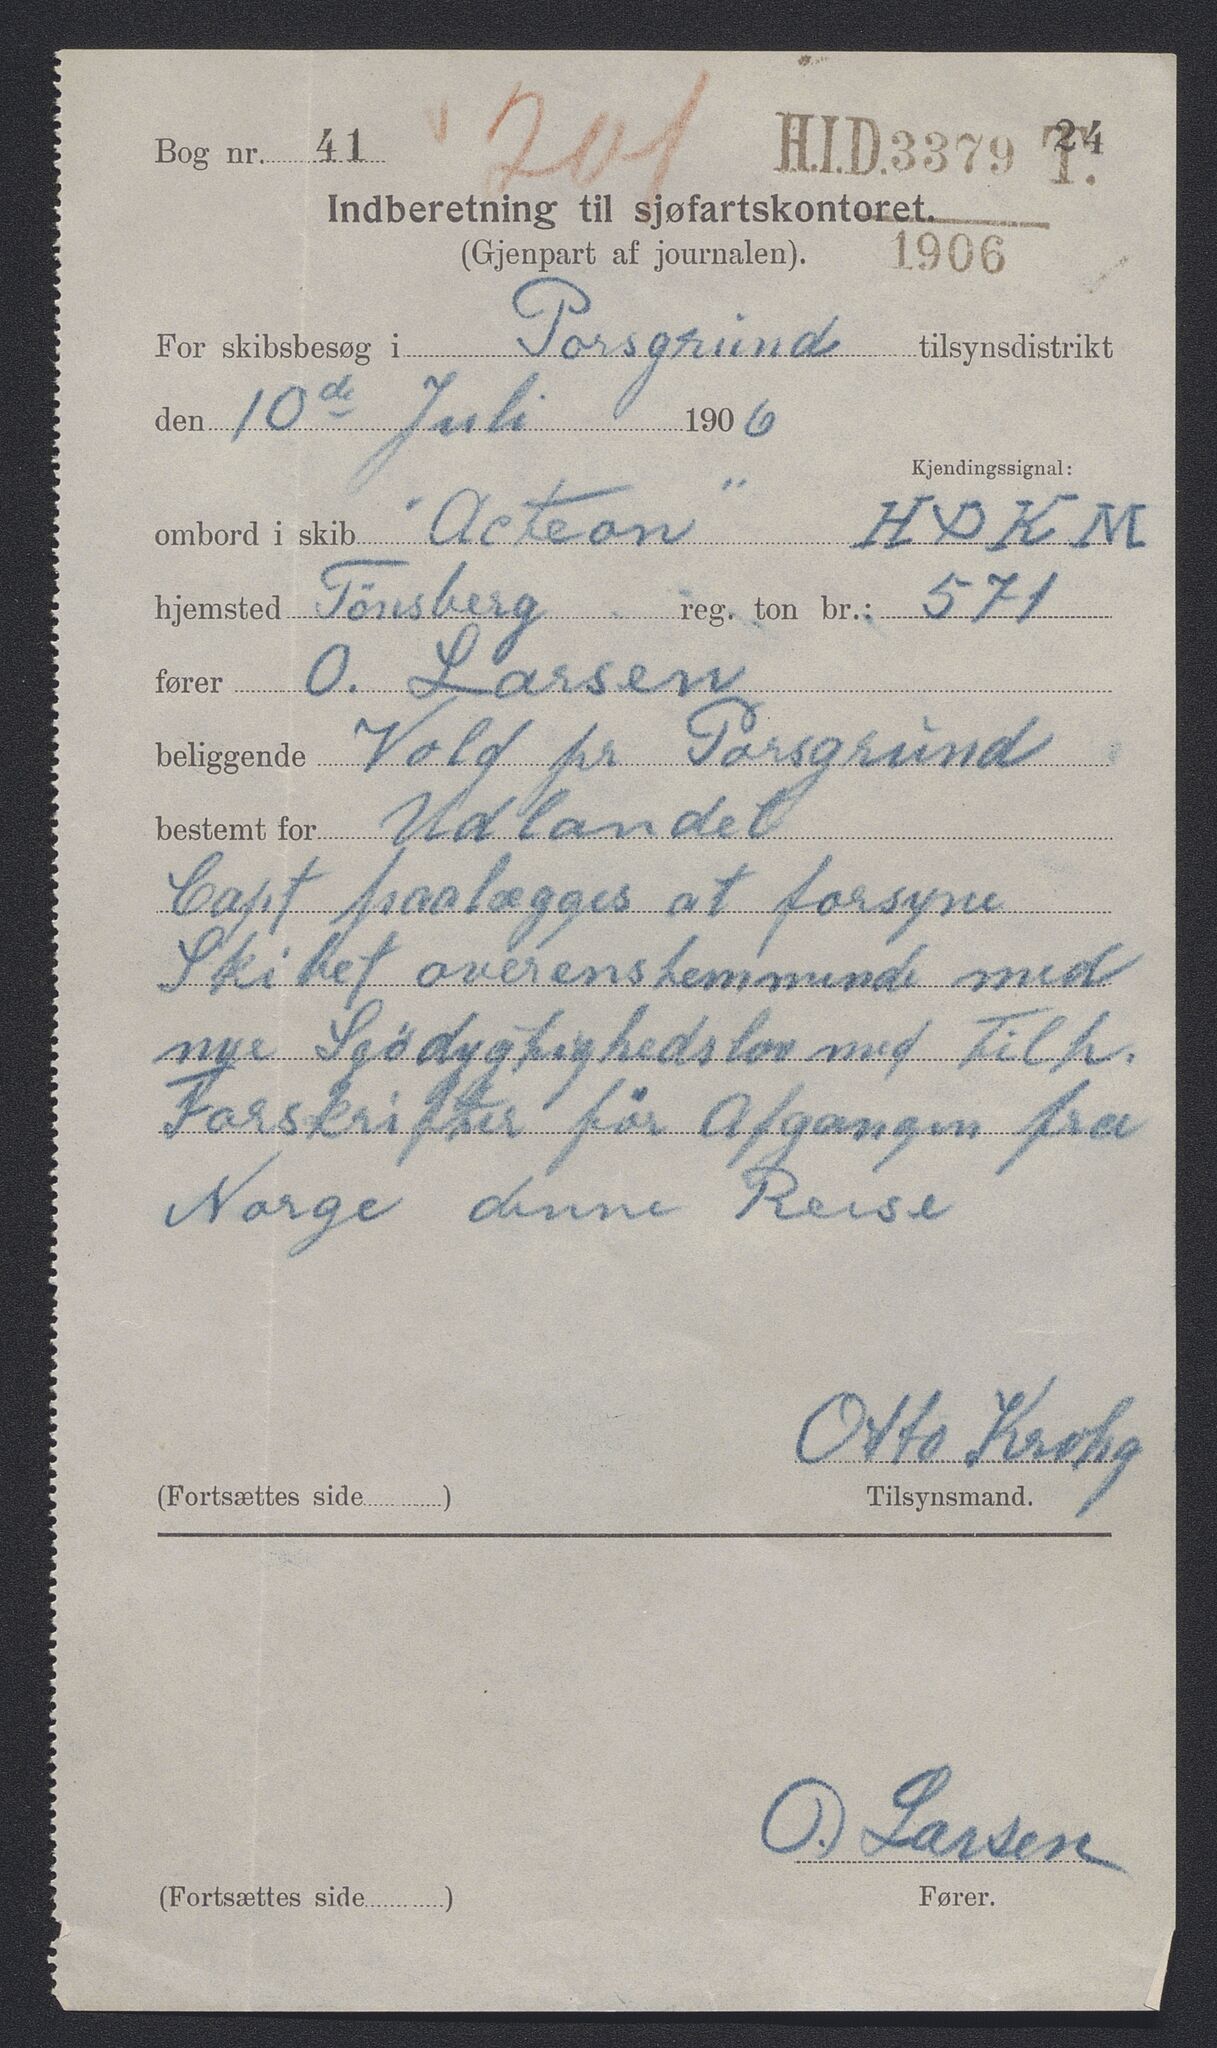 Bog nr. 41 201 H.I.D. 3379 T. 24
Indberetning til sjøfartskontoret.
(Gjenpart af journalen). 1906
For skibsbesøg i Porsgrund tilsynsdistrikt
den 10de Juli 1906
Kjendingssignal:
ombord i skib "Acteon" HDKM
hjemsted Tönsberg reg. ton br.: 571
fører O. Larsen
beliggende Vold pr Porsgrund
bestemt for Udlandet
Capt paalægges at forsyne
Skibet overenstemmende med
nye Sjödygtighedslov med Tilh.
Forskrifter för Afgangen fra
Norge denne Reise
Otto Krohg
(Fortsættes side ) Tilsynsmand.
O. Larsen
(Fortsættes side ) Fører.